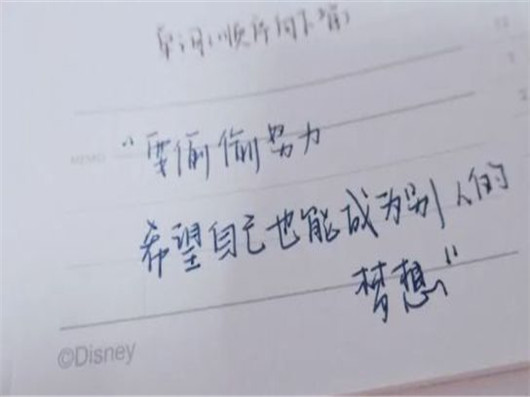 MEMO “要偷偷努力
希望自己也能成为别人的
梦想”
©Disney